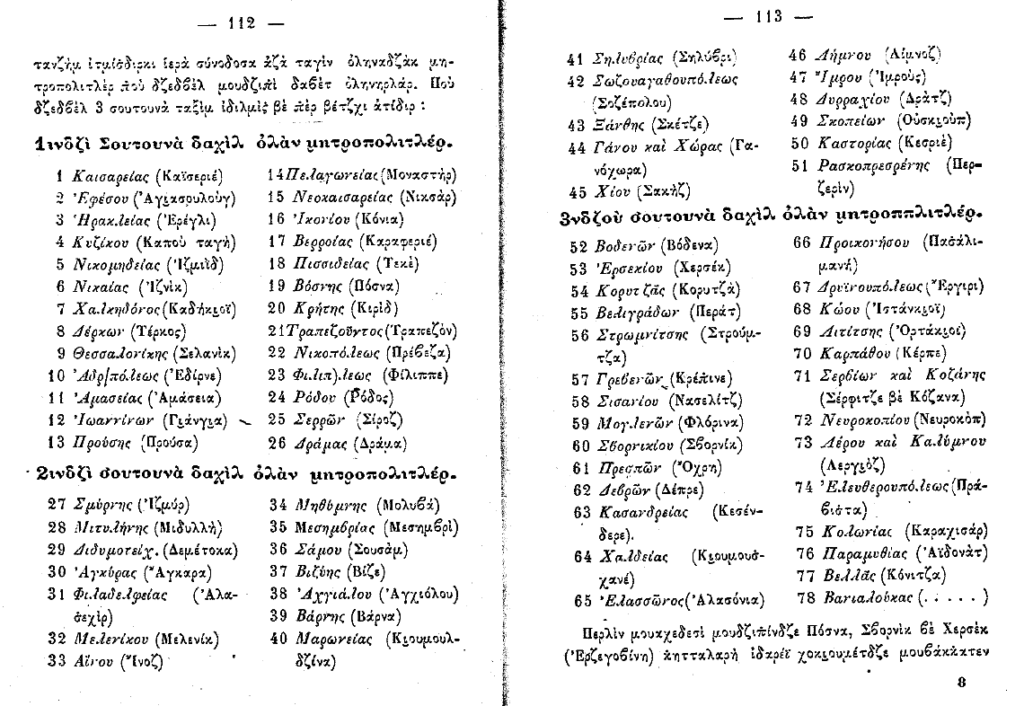 — 112 —
τανζὴμ ἐτμίσδιρκι ἱερὰ σύνοδοσα ἀζὰ ταγὶν ὀληναδζὰκ μη-
τροπολιτλὲρ ποὺ δζεδβὲλ μουδζιπὶ δαβὲτ ὀληνηρλάρ. Ποὺ
δζεδβὲλ 3 σουτουνὰ ταξὶμ ἰδιλμὶς βὲ πὲρ βέτζχι ἀτίδιρ :
1ινδζὶ Σουτουνὰ δαχὶλ ὀλὰν μητροπολιτλέρ.
1 Καισαρείας (Καϊσεριέ)
2 Ἐφέσου (Ἀγιασουλούγ)
3 Ἡρακλείας (Ἐρέγλι)
4 Κυζίκου (Καποὺ ταγὴ)
5 Νικομηδείας (Ἰζμιίδ)
6 Νικαίας (Ἰζνὶκ)
7 Χαλκηδόνος (Καδήκιοϊ)
8 Δέρκων (Τέρκος)
9 Θεσσαλονίκης (Σελανὶκ)
10 Ἀδρ)πόλεως (Ἐδίρνε)
11 Ἀμασείας (Ἀμάσεια)
12 Ἰωαννίνων (Γιάνγια)
13 Προύσης (Προῦσα)
14 Πελαγωνείας (Μοναστήρ)
15 Νεοκαισαρείας (Νικσάρ)
16 Ἰκονίου (Κόνια)
17 Βερροίας (Καραφεριέ)
18 Πισσιδείας (Τεκὲ)
19 Βόσνης (Πόσνα)
20 Κρήτης (Κιρίδ)
21 Τραπεζοῦντος (Τραπεζὸν)
22 Νικοπόλεως (Πρέβεζα)
23 Φιλιπ)λεως (Φίλιππε)
24 Ρόδου (Ρόδος)
25 Σερρῶν (Σίροζ)
26 Δράμας (Δράμα)
2ινδζὶ σουτουνὰ δαχὶλ ὀλὰν μητροπολιτλέρ.
27 Σμύρνης (Ἰζμύρ)
28 Μιτυλήνης (Μιδυλλή)
29 Διδυμοτείχ. (Δεμέτοκα)
30 Ἀγκύρας (Ἄγκαρα)
31 Φιλαδελφείας (Ἀλα-
σεχὶρ)
32 Μελενίκου (Μελενίκ)
33 Αἴνου (Ἴνοζ)
34 Μηθύμνης (Μολυβά)
35 Μεσημβρίας (Μεσημβρὶ)
36 Σάμου (Σουσὰμ)
37 Βιζύης (Βίζε)
38 Ἀχγιάλου (Ἀγχιόλου)
39 Βάρνης (Βάρνα)
40 Μαρωνείας (Κιουμουλ-
δζίνα)
— 113 —
41 Σηλυβρίας (Σηλύβρι)
42 Σωζουαγαθουπόλεως
(Σοζέπολου)
43 Ξάνθης (Σκέτζε)
44 Γάνου καὶ Χώρας (Γα-
νόχωρα)
45 Χίου (Σακήζ)
46 Λήμνου (Λίμνοζ)
47 Ἴμρου (Ἰμροὺς)
48 Δυρραχίου (Δρὰτζ)
49 Σκοπείων (Οὐσκιοὺπ)
50 Καστορίας (Κεσριὲ)
51 Ρασκοπρεσρένης (Περ-
ζερὶν)
3νδζοὺ σουτουνὰ δαχὶλ ὀλὰν μητροππλιτλέρ.
52 Βοδενῶν (Βόδενα)
53 Ἐρσεκίου (Χερσέκ)
54 Κορυτζᾶς (Κορυτζὰ)
55 Βελιγράδων (Περάτ)
56 Στρωμνίτσης (Στρούμ-
τζα)
57 Γρεβενῶν (Κρέπινε)
58 Σισανίου (Νασελίτζ)
59 Μογλενῶν (Φλόρινα)
60 Σβορνικίου (Σβορνίκ)
61 Πρεσπῶν (Ὄχρη)
62 Δεβρῶν (Δίπρε)
63 Κασανδρείας (Κεσέν-
δερε).
64 Χαλδείας (Κιουμουσ-
χανέ)
65 Ἐλασσῶνος (Ἀλασόνια)
66 Προικονήσου (Πασάλι-
μανή)
67 Δρυϊνουπόλεως (Ἔργιρι)
68 Κώου (Ἰστάνκιοϊ)
69 Λιτίτσης (Ὀρτάκιοϊ)
70 Καρπάθου (Κέρπε)
71 Σερβίων καὶ Κοζάνης
(Σέρφιτζε βὲ Κόζανα)
72 Νευροκοπίου (Νευροκὸπ)
73 Λέρου καὶ Καλύμνου
(Λεργιὸζ)
74 Ἐλευθερουπόλεως (Πρά-
βιστα)
75 Κολωνίας (Καραχισάρ)
76 Παραμυθίας (Ἀϊδονὰτ)
77 Βελλᾶς (Κόνιτζα)
78 Βανιαλούκας (. . . . . )
Περλὶν μουαχεδεσὶ μουδζιπίνδζε Πόσνα, Σβορνὶκ βὲ Χερσὲκ
(Ἐρζεγοβίνη) κητταλαρὴ ἰδαρέϊ χοκιουμέτδζε μουβάκκατεν
8